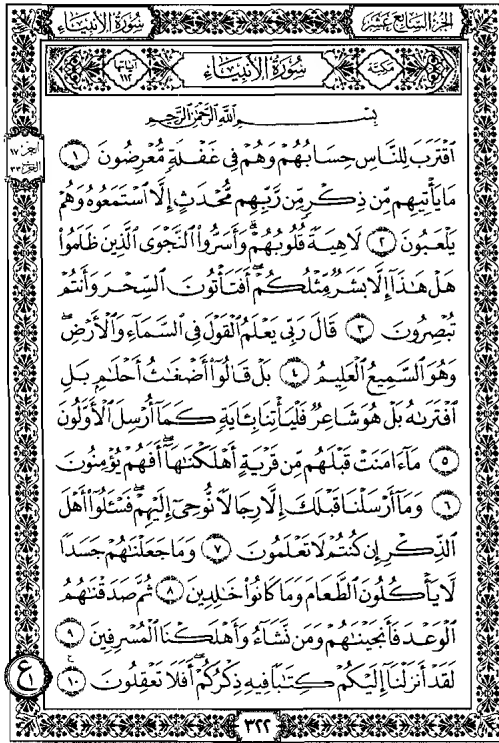 الجزء السابع عشر
سورة الأنبياء
مكية
سُورَةُ الأَنبِيَاءِ
آياتها ١١٢
بِسْمِ اللَّهِ الرَّحْمَٰنِ الرَّحِيمِ
ٱقْتَرَبَ لِلنَّاسِ حِسَابُهُمْ وَهُمْ فِى غَفْلَةٍ مُّعْرِضُونَ ١
مَا يَأْتِيهِم مِّن ذِكْرٍ مِّن رَّبِّهِم مُّحْدَثٍ إِلَّا ٱسْتَمَعُوهُ وَهُمْ
يَلْعَبُونَ ٢ لَاهِيَةً قُلُوبُهُمْ ۗ وَأَسَرُّوا۟ ٱلنَّجْوَى ٱلَّذِينَ ظَلَمُوا۟
هَلْ هَٰذَآ إِلَّا بَشَرٌ مِّثْلُكُمْ ۖ أَفَتَأْتُونَ ٱلسِّحْرَ وَأَنتُمْ
تُبْصِرُونَ ٣ قَالَ رَبِّى يَعْلَمُ ٱلْقَوْلَ فِى ٱلسَّمَآءِ وَٱلْأَرْضِ ۖ
وَهُوَ ٱلسَّمِيعُ ٱلْعَلِيمُ ٤ بَلْ قَالُوٓا۟ أَضْغَٰثُ أَحْلَٰمٍۭ بَلِ
ٱفْتَرَىٰهُ بَلْ هُوَ شَاعِرٌ فَلْيَأْتِنَا بِـَٔايَةٍ كَمَآ أُرْسِلَ ٱلْأَوَّلُونَ
٥ مَآ ءَامَنَتْ قَبْلَهُم مِّن قَرْيَةٍ أَهْلَكْنَٰهَآ ۖ أَفَهُمْ يُؤْمِنُونَ
٦ وَمَآ أَرْسَلْنَا قَبْلَكَ إِلَّا رِجَالًا نُّوحِىٓ إِلَيْهِمْ ۖ فَسْـَٔلُوٓا۟ أَهْلَ
ٱلذِّكْرِ إِن كُنتُمْ لَا تَعْلَمُونَ ٧ وَمَا جَعَلْنَٰهُمْ جَسَدًا
لَّا يَأْكُلُونَ ٱلطَّعَامَ وَمَا كَانُوا۟ خَٰلِدِينَ ٨ ثُمَّ صَدَقْنَٰهُمُ
ٱلْوَعْدَ فَأَنجَيْنَٰهُمْ وَمَن نَّشَآءُ وَأَهْلَكْنَا ٱلْمُسْرِفِينَ ٩
لَقَدْ أَنزَلْنَآ إِلَيْكُمْ كِتَٰبًا فِيهِ ذِكْرُكُمْ ۖ أَفَلَا تَعْقِلُونَ ١٠
ع
١
٣٢٢